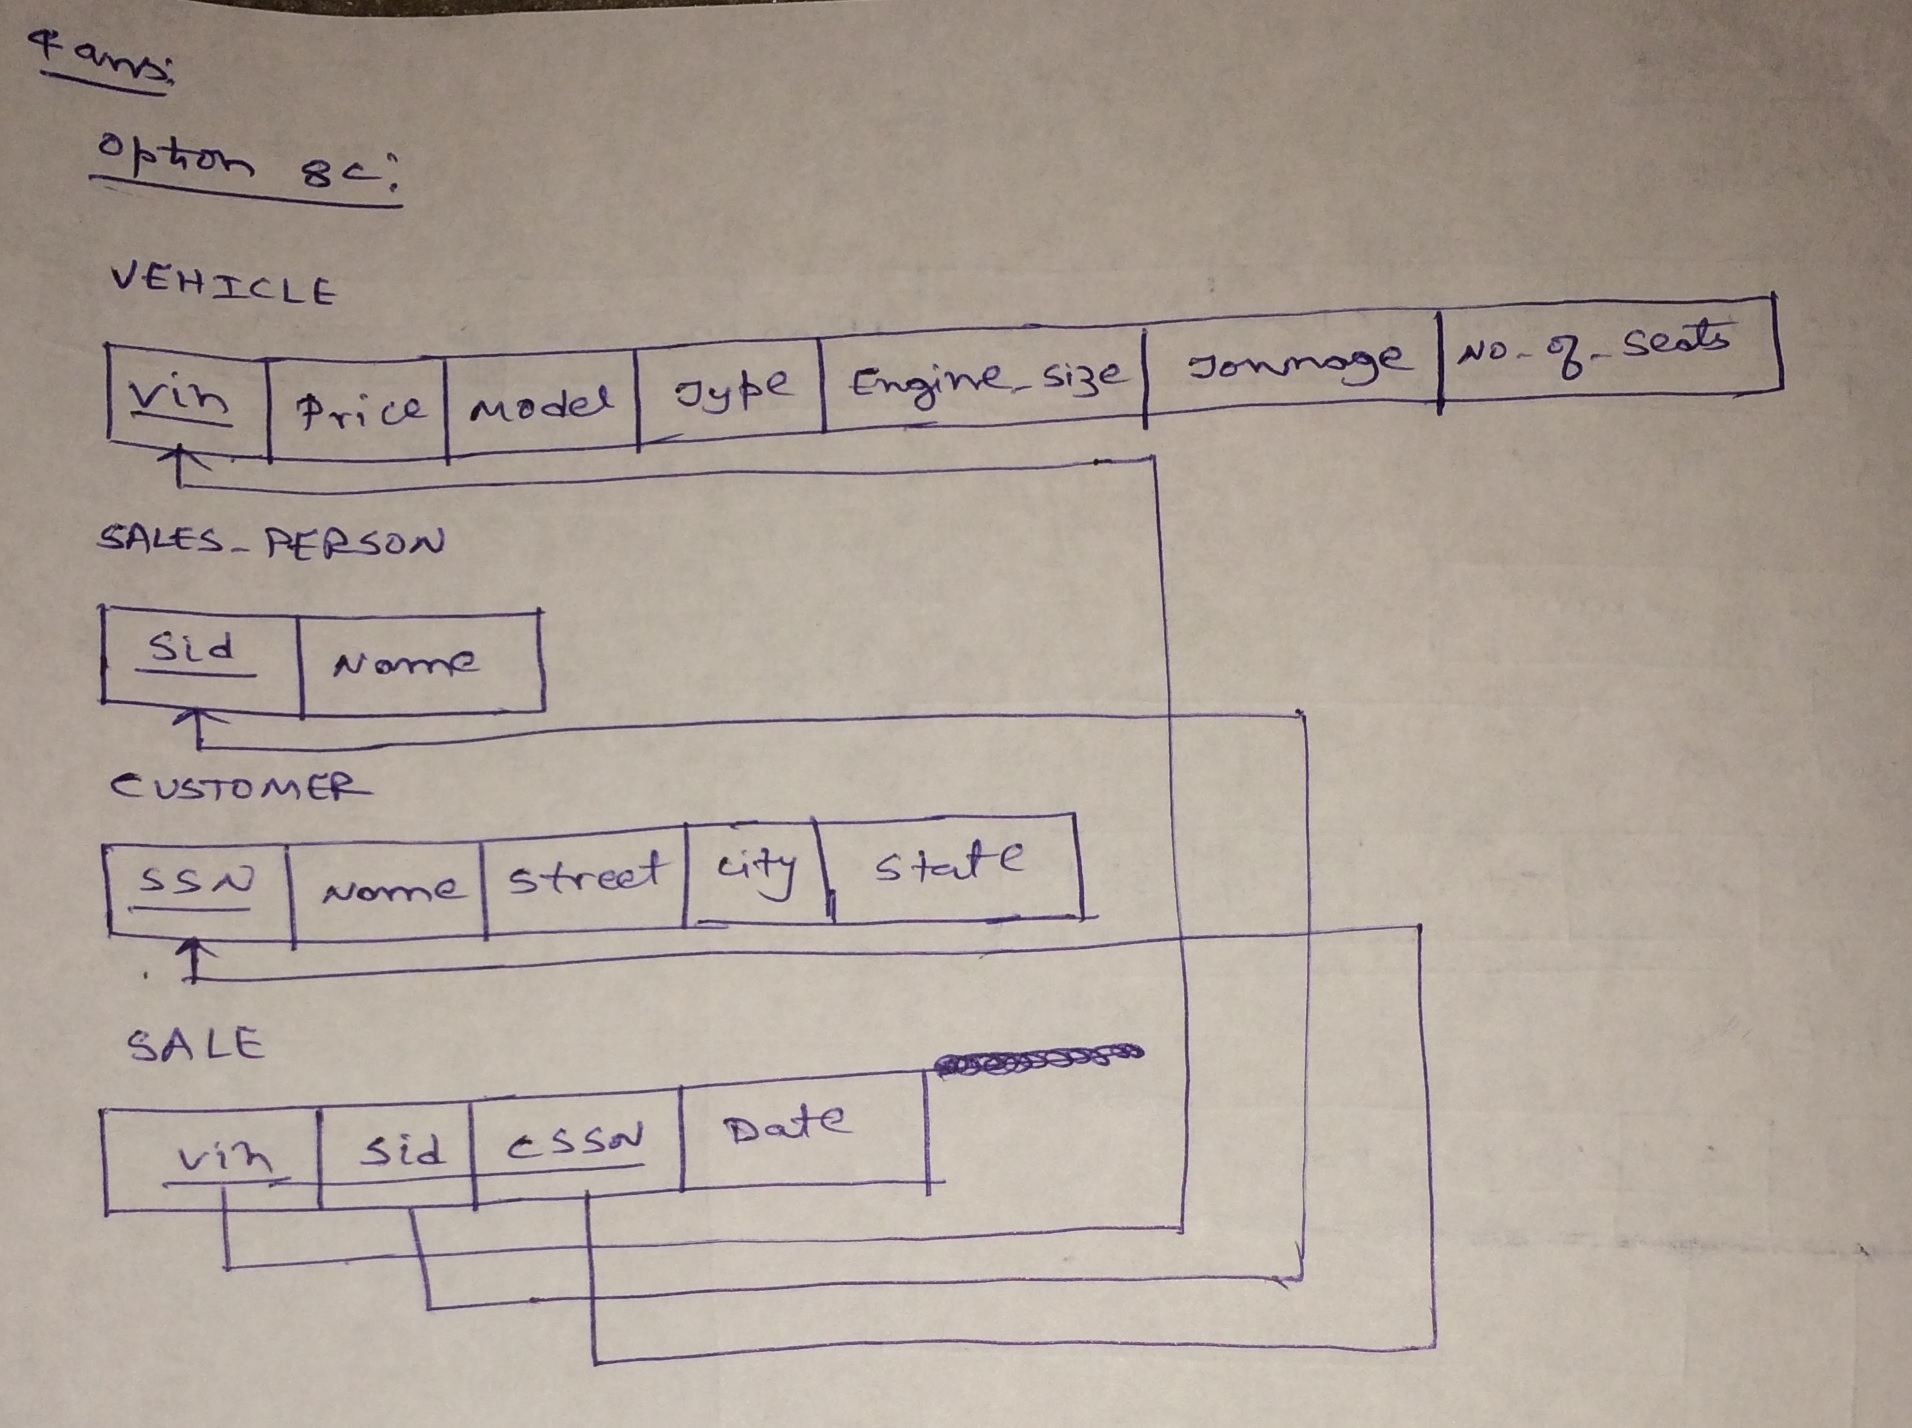 4 ans:
option 8c:
VEHICLE
Vin Price Model Type Engine_Size Tonnage No_of_Seats
SALES_PERSON
Sid Name
CUSTOMER
SSN Name Street city State
SALE
Vin Sid CSSN Date